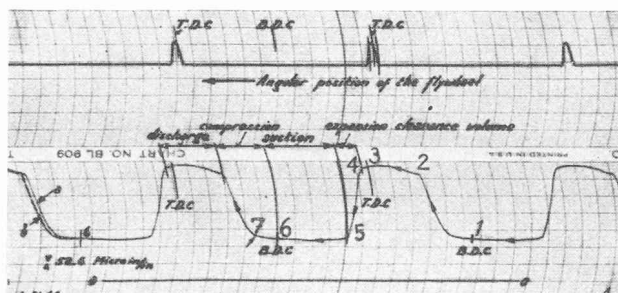 T.D.C B.D.C T.D.C
Angular position of the flywheel
discharge compression suction expansion clearance volume
CHART NO. BL 909
PRINTED IN U.S.A.
4 3 2
T.D.C T.D.C
6 7 6 5 1
B.D.C B.D.C
52.6 Microin/in